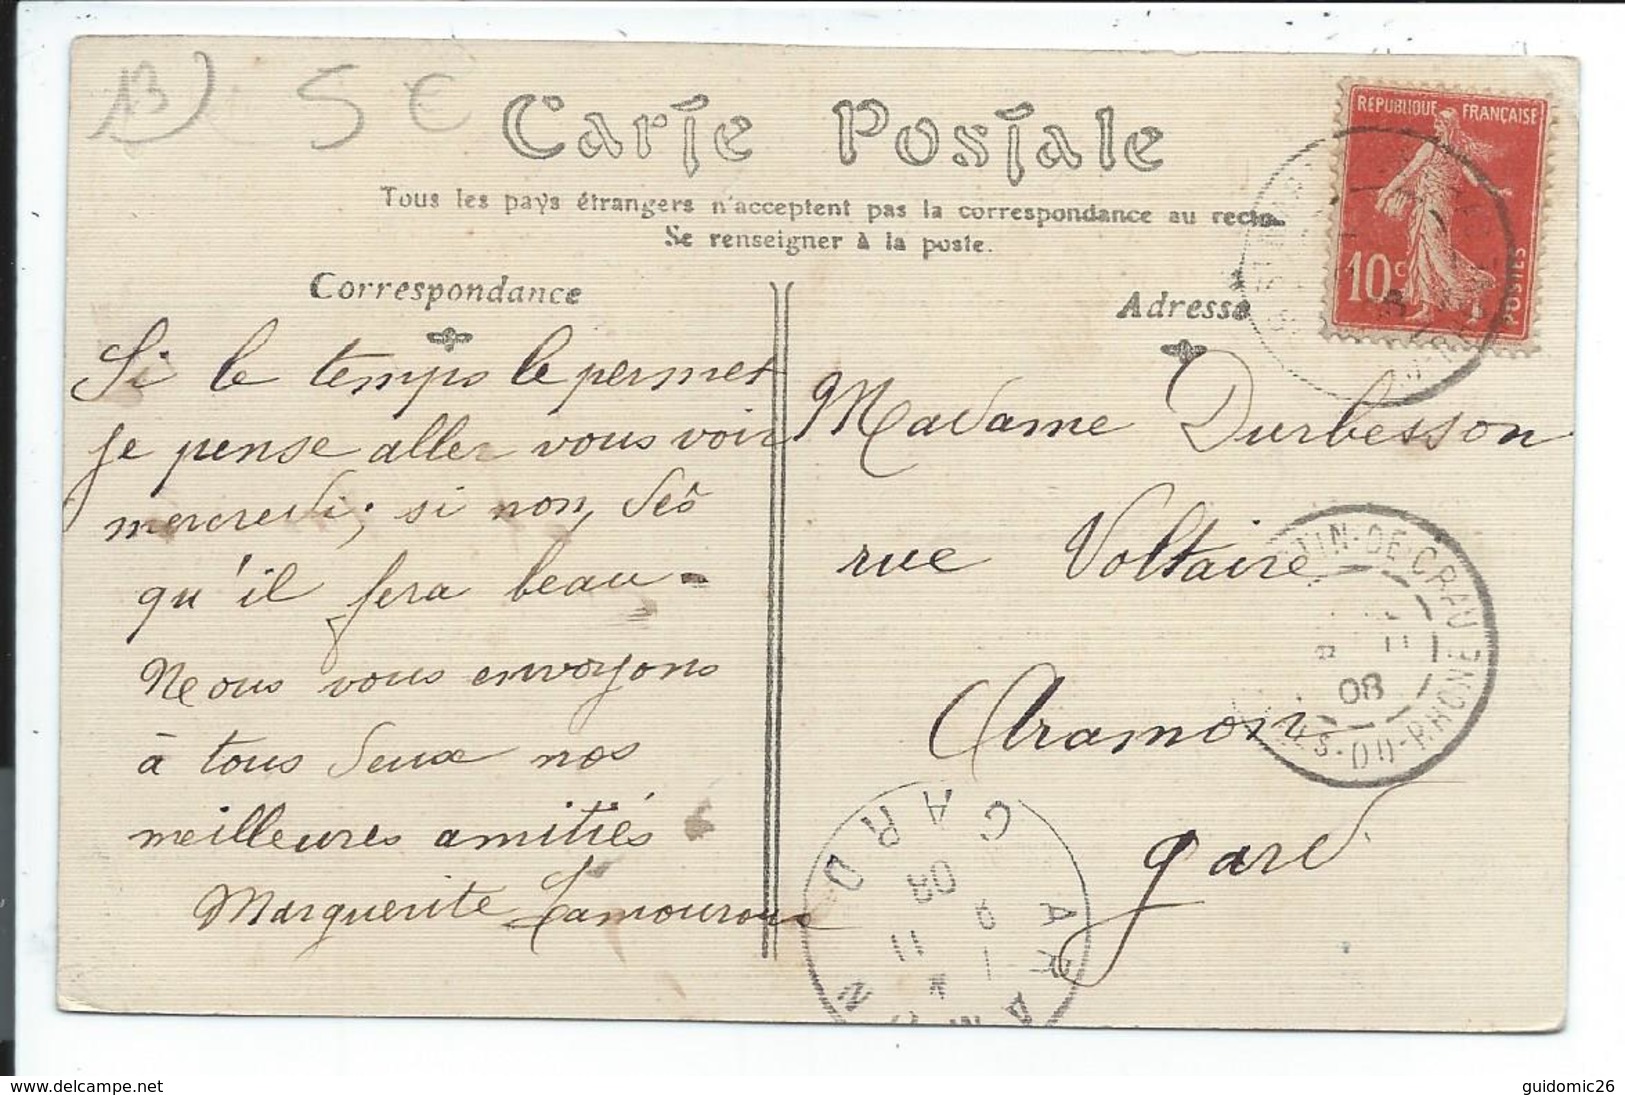 13 5 €
Carte Postale
Tous les pays étrangers n'acceptent pas la correspondance au recto.
Se renseigner à la poste.
Correspondance
Adresse
REPUBLIQUE FRANÇAISE
10c
POSTES
Si le temps le permet
je pense aller vous voir
mercredi; si non, dès
qu'il fera beau -
Nous vous envoyons
à tous deux nos
meilleures amitiés
Marguerite Lamouroux
Madame Durbesson
rue Voltaire
Aramon
gard
TIN-DE-CRAU
08
ES-DU-RHONE
ARAMON
GARD
11
08
www.delcampe.net
guidomic26